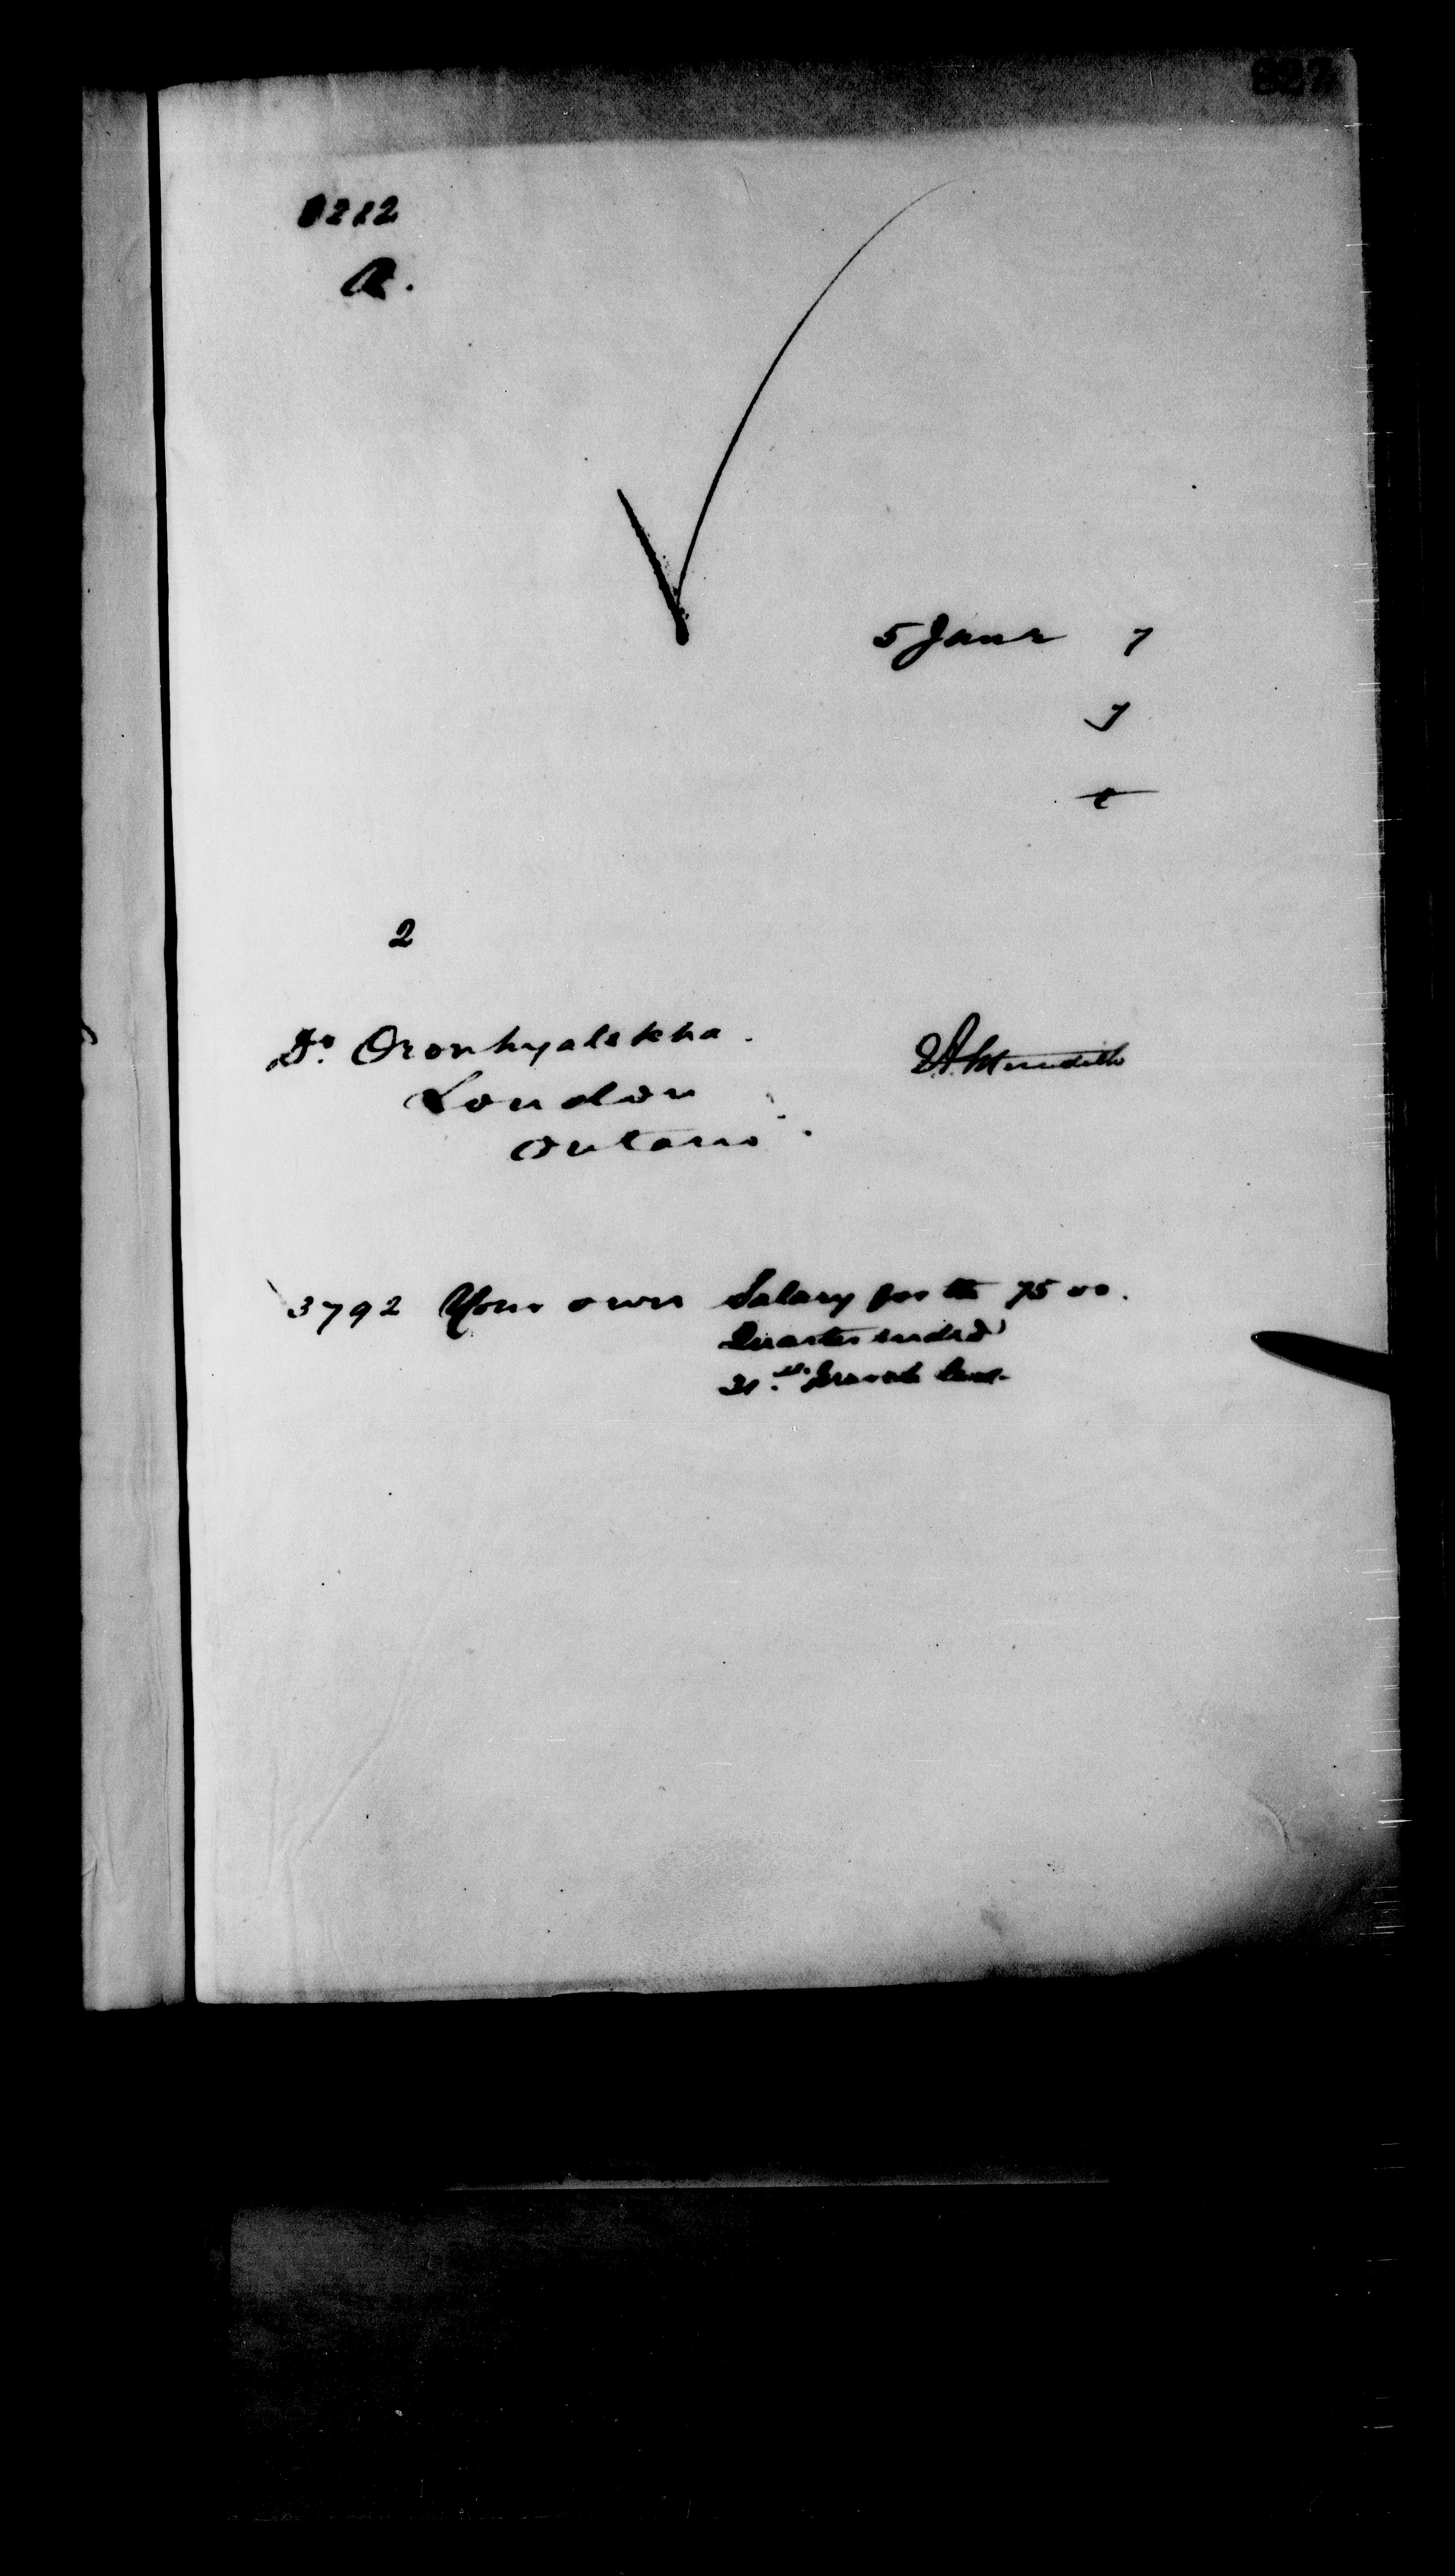 827
8212
R.
5 Janr 7
y
2
Dr. Oronhyatekha.
London
Ontario.
E A Meredith
3792 Your own Salary for the 75 00.
Quarter ended
31st